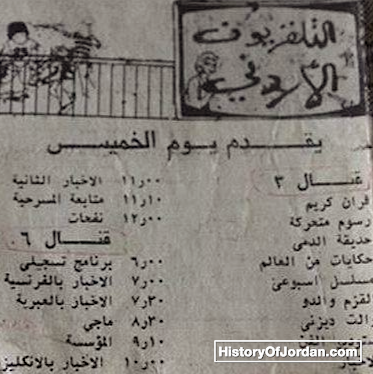 التلفزيون
الأردني
يقدم يوم الخميس
قنال ٣
قرآن كريم
رسوم متحركة
حديقة الدمى
حكايات من العالم
مسلسل اسبوعي
القزم والدو
والت ديزني
الفن
١١ر٠٠ الاخبار الثانية
١١ر١٠ متابعة المسرحية
١٢ر٠٠ نفحات
قنال ٦
٦ر٠٠ برنامج تسجيلي
٧ر٠٠ الاخبار بالفرنسية
٧ر٣٠ الاخبار بالعبرية
٨ر٣٠ ماجي
٩ر١٠ المؤسسة
١٠ر٠٠ الاخبار بالانكليز
HistoryOfJordan.com